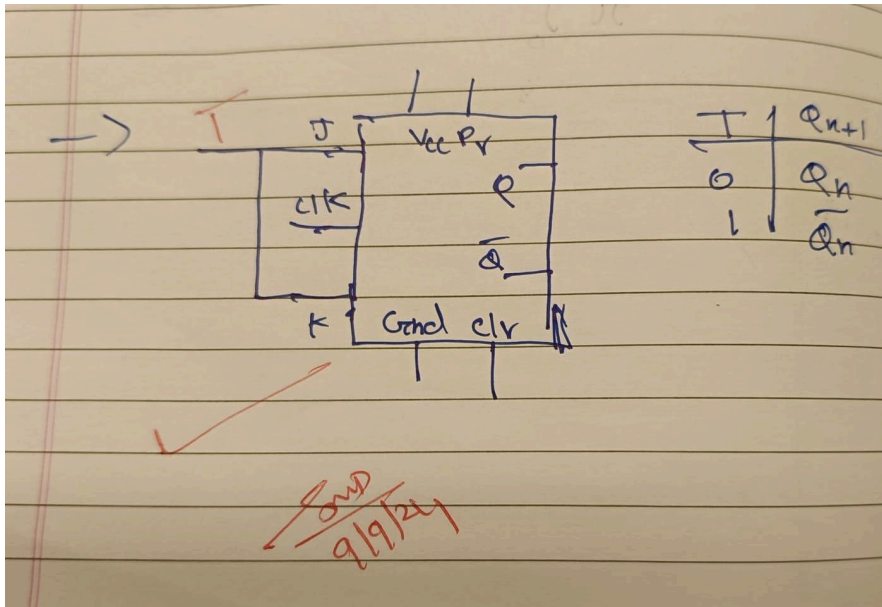 T
J
Vcc Pr
Q
clk
Q̅
K
Gnd clr
T Qn+1
0 Qn
1 Q̅n
9/9/24